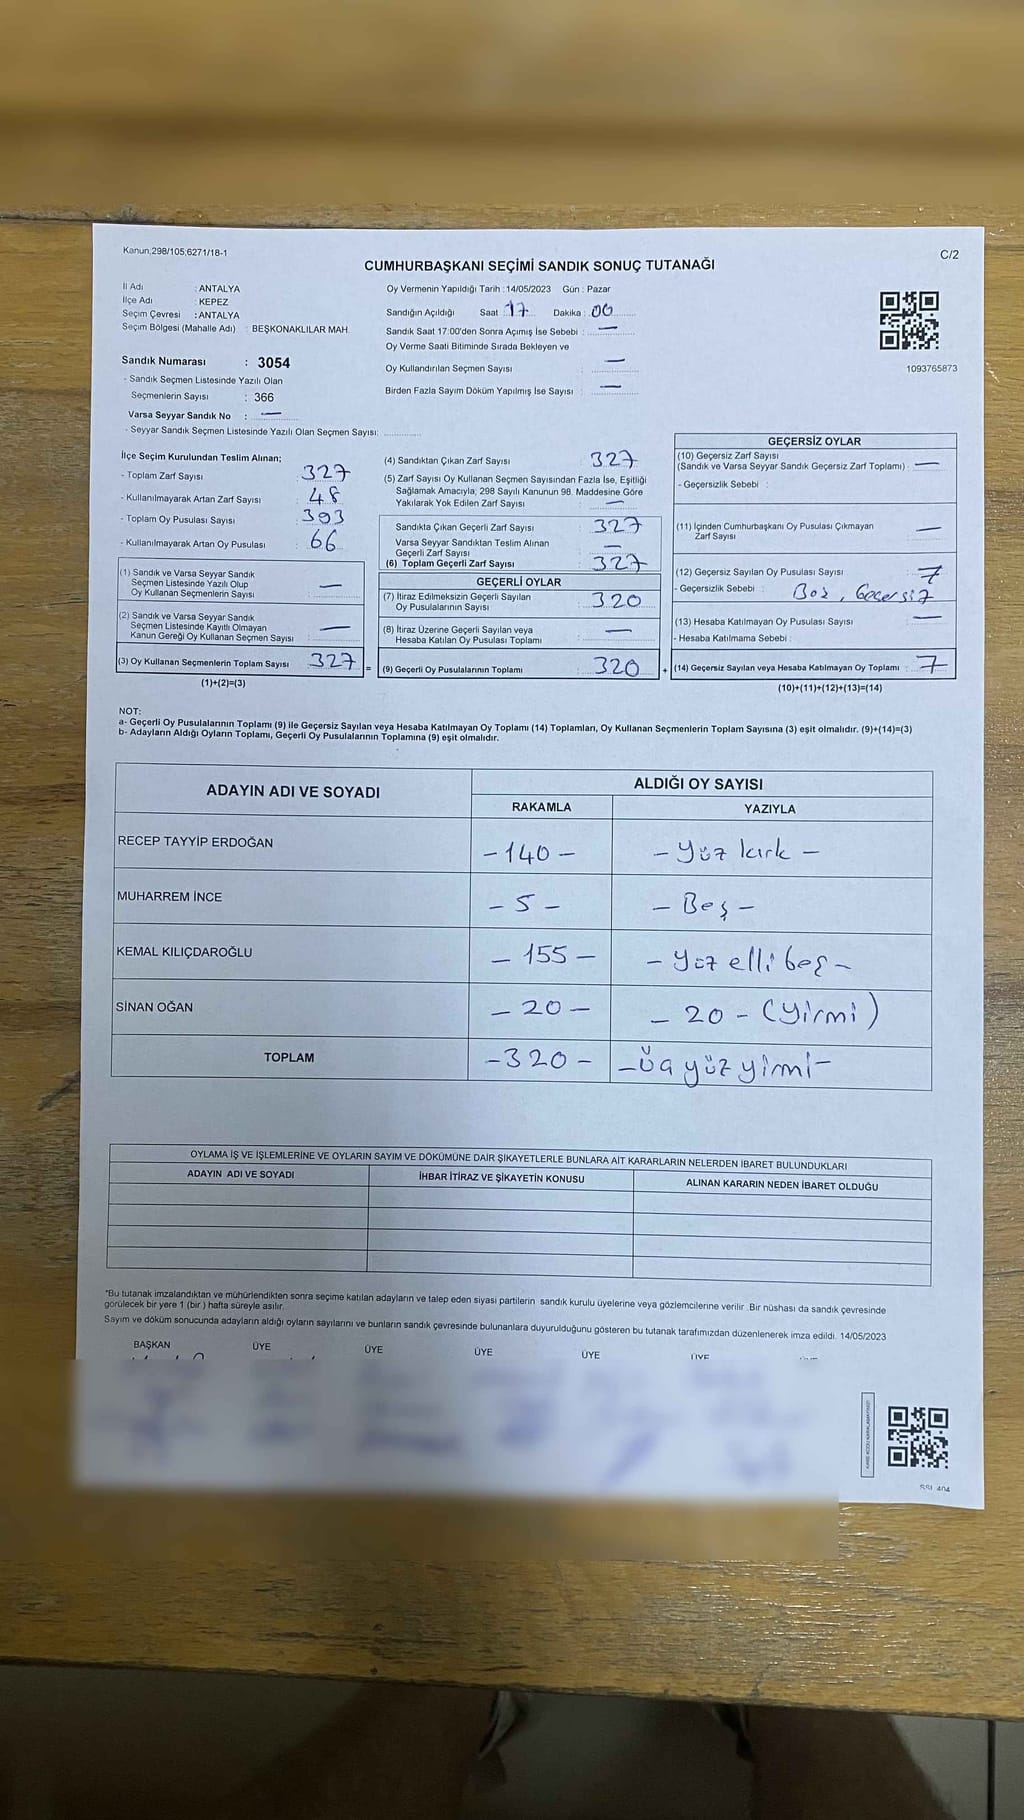 Kanun,298/105;6271/18-1
C/2
CUMHURBAŞKANI SEÇİMİ SANDIK SONUÇ TUTANAĞI
İl Adı : ANTALYA
İlçe Adı : KEPEZ
Seçim Çevresi : ANTALYA
Seçim Bölgesi (Mahalle Adı) : BEŞKONAKLILAR MAH.
Oy Vermenin Yapıldığı Tarih : 14/05/2023 Gün : Pazar
Sandığın Açıldığı Saat 17 Dakika : 00
Sandık Saat 17:00'den Sonra Açımış İse Sebebi : —
Oy Verme Saati Bitiminde Sırada Bekleyen ve
Oy Kullandırılan Seçmen Sayısı : —
Birden Fazla Sayım Döküm Yapılmış İse Sayısı : —
1093765873
Sandık Numarası : 3054
- Sandık Seçmen Listesinde Yazılı Olan
Seçmenlerin Sayısı : 366
Varsa Seyyar Sandık No : —
- Seyyar Sandık Seçmen Listesinde Yazılı Olan Seçmen Sayısı:
İlçe Seçim Kurulundan Teslim Alınan;
- Toplam Zarf Sayısı 327
- Kullanılmayarak Artan Zarf Sayısı 48
- Toplam Oy Pusulası Sayısı 393
- Kullanılmayarak Artan Oy Pusulası 66
(1) Sandık ve Varsa Seyyar Sandık
Seçmen Listesinde Yazılı Olup
Oy Kullanan Seçmenlerin Sayısı : —
(2) Sandık ve Varsa Seyyar Sandık
Seçmen Listesinde Kayıtlı Olmayan
Kanun Gereği Oy Kullanan Seçmen Sayısı : —
(3) Oy Kullanan Seçmenlerin Toplam Sayısı : 327 =
(1)+(2)=(3)
(4) Sandıktan Çıkan Zarf Sayısı : 327
(5) Zarf Sayısı Oy Kullanan Seçmen Sayısından Fazla İse, Eşitliği
Sağlamak Amacıyla; 298 Sayılı Kanunun 98. Maddesine Göre
Yakılarak Yok Edilen Zarf Sayısı : —
Sandıkta Çıkan Geçerli Zarf Sayısı : 327
Varsa Seyyar Sandıktan Teslim Alınan
Geçerli Zarf Sayısı : —
(6) Toplam Geçerli Zarf Sayısı : 327
GEÇERLİ OYLAR
(7) İtiraz Edilmeksizin Geçerli Sayılan
Oy Pusulalarının Sayısı : 320
(8) İtiraz Üzerine Geçerli Sayılan veya
Hesaba Katılan Oy Pusulası Toplamı : —
(9) Geçerli Oy Pusulalarının Toplamı : 320 +
GEÇERSİZ OYLAR
(10) Geçersiz Zarf Sayısı
(Sandık ve Varsa Seyyar Sandık Geçersiz Zarf Toplamı) : —
- Geçersizlik Sebebi :
(11) İçinden Cumhurbaşkanı Oy Pusulası Çıkmayan
Zarf Sayısı : —
(12) Geçersiz Sayılan Oy Pusulası Sayısı : 7
- Geçersizlik Sebebi : Boş, Geçersiz
(13) Hesaba Katılmayan Oy Pusulası Sayısı : —
- Hesaba Katılmama Sebebi :
(14) Geçersiz Sayılan veya Hesaba Katılmayan Oy Toplamı : 7
(10)+(11)+(12)+(13)=(14)
NOT:
a- Geçerli Oy Pusulalarının Toplamı (9) ile Geçersiz Sayılan veya Hesaba Katılmayan Oy Toplamı (14) Toplamları, Oy Kullanan Seçmenlerin Toplam Sayısına (3) eşit olmalıdır. (9)+(14)=(3)
b- Adayların Aldığı Oyların Toplamı, Geçerli Oy Pusulalarının Toplamına (9) eşit olmalıdır.
ADAYIN ADI VE SOYADI
ALDIĞI OY SAYISI
RAKAMLA YAZIYLA
RECEP TAYYİP ERDOĞAN - 140 - - Yüz kırk -
MUHARREM İNCE - 5 - - Beş -
KEMAL KILIÇDAROĞLU - 155 - - Yüz elli beş -
SİNAN OĞAN - 20 - - 20 - (Yirmi)
TOPLAM - 320 - - üç yüz yirmi -
OYLAMA İŞ VE İŞLEMLERİNE VE OYLARIN SAYIM VE DÖKÜMÜNE DAİR ŞİKAYETLERLE BUNLARA AİT KARARLARIN NELERDEN İBARET BULUNDUKLARI
ADAYIN ADI VE SOYADI İHBAR İTİRAZ VE ŞİKAYETİN KONUSU ALINAN KARARIN NEDEN İBARET OLDUĞU
*Bu tutanak imzalandıktan ve mühürlendikten sonra seçime katılan adayların ve talep eden siyasi partilerin sandık kurulu üyelerine veya gözlemcilerine verilir. Bir nüshası da sandık çevresinde
görülecek bir yere 1 (bir ) hafta süreyle asılır.
Sayım ve döküm sonucunda adayların aldığı oyların sayılarını ve bunların sandık çevresinde bulunanlara duyurulduğunu gösteren bu tutanak tarafımızdan düzenlenerek imza edildi. 14/05/2023
BAŞKAN ÜYE ÜYE ÜYE ÜYE ÜYE